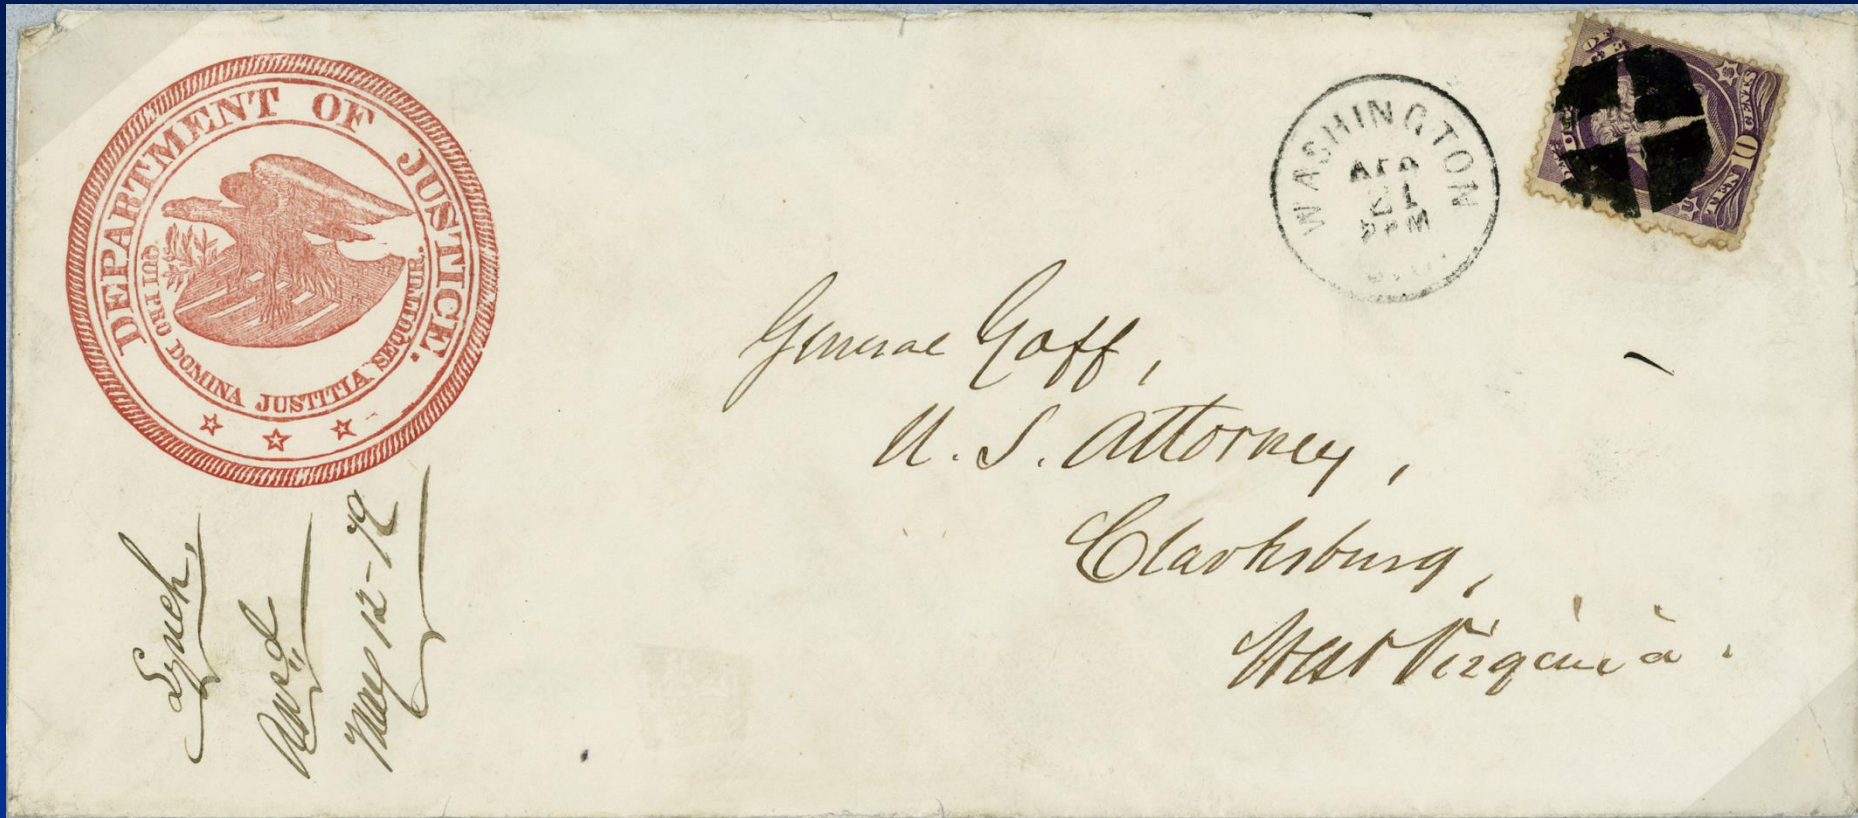 DEPARTMENT OF JUSTICE.
QUI PRO DOMINA JUSTITIA SEQUITUR.
WASHINGTON
21
General Goff,
U. S. Attorney,
Clarksburg,
West Virginia.
Lynch,
Ans'd
May 12-79